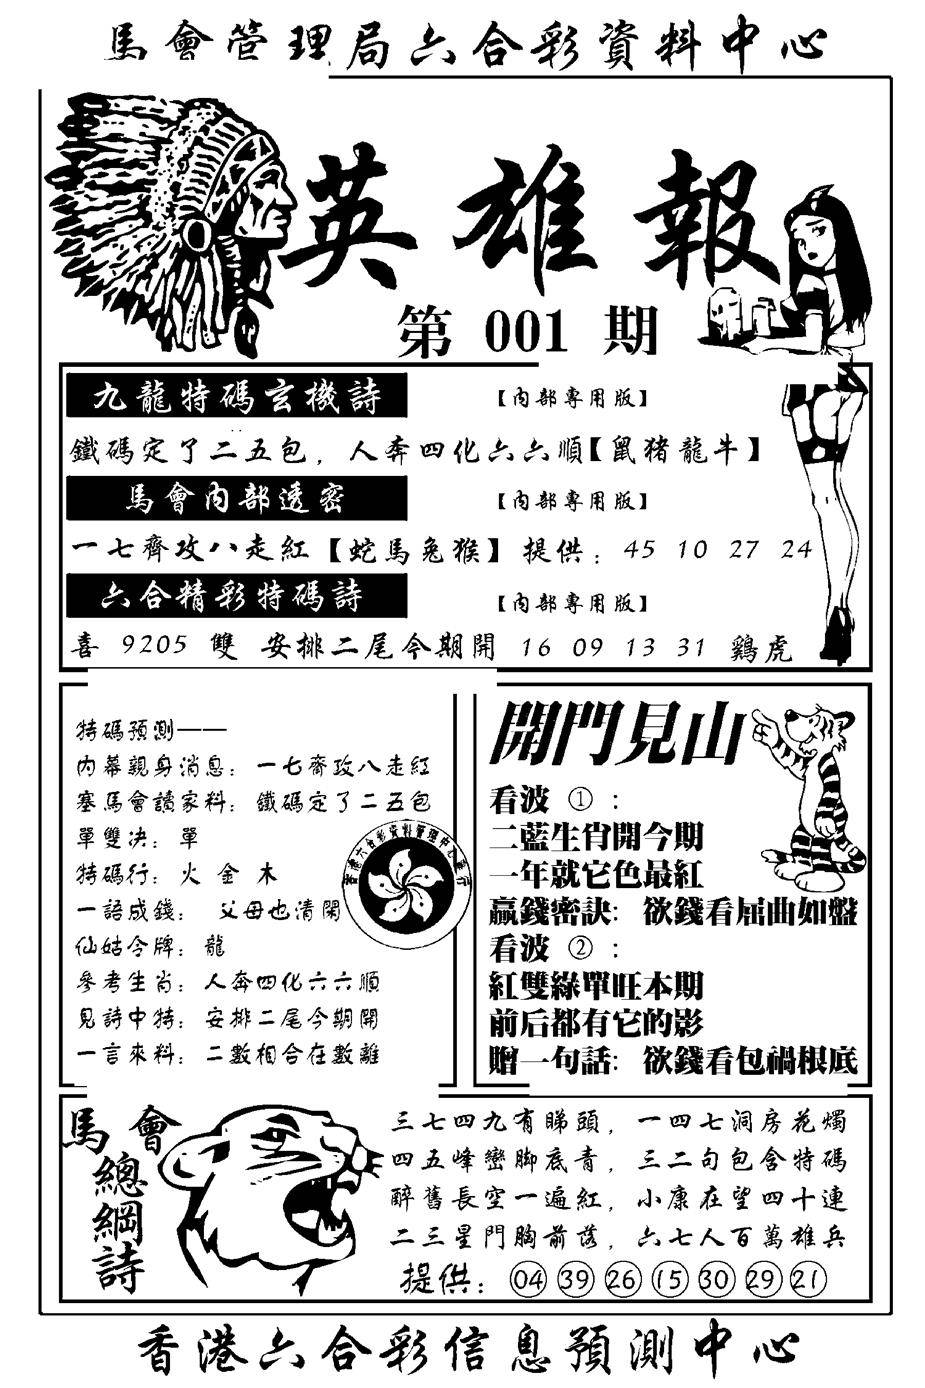 馬會管理局六合彩資料中心
英雄報
第 001 期
九龍特碼玄機詩 【內部專用版】
鐵碼定了二五包，人奔四化六六順【鼠猪龍牛】
馬會內部透密 【內部專用版】
一七齊攻八走紅【蛇馬兔猴】提供：45 10 27 24
六合精彩特碼詩 【內部專用版】
喜 9205 雙 安排二尾今期開 16 09 13 31 鷄虎
特碼預測——
內幕親身消息：一七齊攻八走紅
塞馬會讀家料：鐵碼定了二五包
單雙决：單
特碼行：火 金 木
一語成錢： 父母也清閑
仙姑令牌：龍
參考生肖：人奔四化六六順
見詩中特：安排二尾今期開
一言來料：二數相合在數離
香港六合彩資料管理中心發行
開門見山
看波 ①：
二藍生肖開今期
一年就它色最紅
贏錢密訣：欲錢看屈曲如盤
看波 ②：
紅雙綠單旺本期
前后都有它的影
贈一句話：欲錢看包禍根底
馬會
總綱詩
三七四九有睇頭，一四七洞房花燭
四五峰巒脚底青，三二句包含特碼
醉舊長空一遍紅，小康在望四十連
二三星門胸前落，六七人百萬雄兵
提供：04 39 26 15 30 29 21
香港六合彩信息預測中心